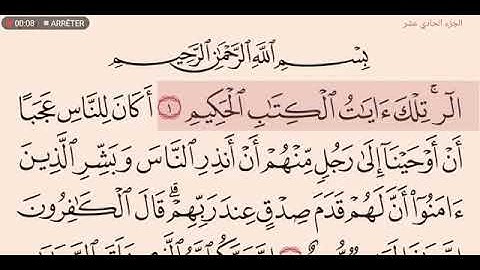 00:08 ARRÊTER
الجزء الحادي عشر
بِسْمِ اللَّهِ الرَّحْمَٰنِ الرَّحِيمِ
الٓرۚ تِلْكَ ءَايَٰتُ ٱلْكِتَٰبِ ٱلْحَكِيمِ ١ أَكَانَ لِلنَّاسِ عَجَبًا
أَنْ أَوْحَيْنَآ إِلَىٰ رَجُلٍ مِّنْهُمْ أَنْ أَنذِرِ ٱلنَّاسَ وَبَشِّرِ ٱلَّذِينَ
ءَامَنُوٓا۟ أَنَّ لَهُمْ قَدَمَ صِدْقٍ عِندَ رَبِّهِمْۗ قَالَ ٱلْكَٰفِرُونَ